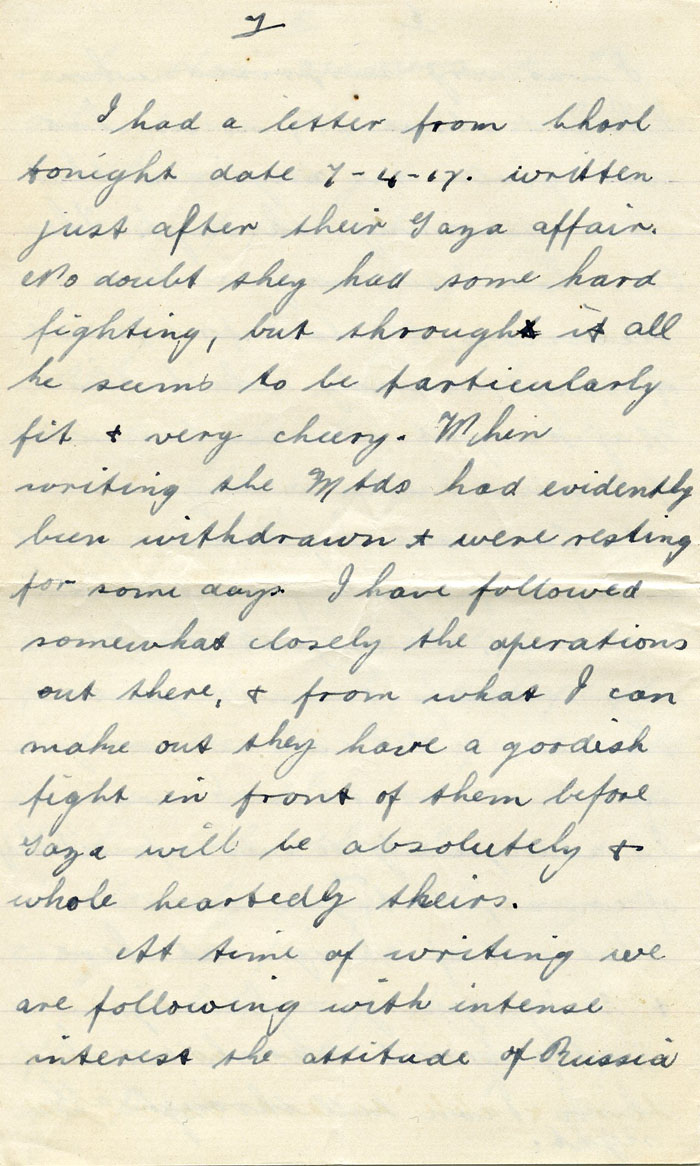 7
I had a letter from Chorl
tonight date 7-4-17. written
just after their Gaza affair.
No doubt they had some hard
fighting, but through it all
he seems to be particularly
fit & very cheery. When
writing the Mtds had evidently
been withdrawn & were resting
for some days. I have followed
somewhat closely the operations
out there, & from what I can
make out they have a goodish
fight in front of them before
Gaza will be absolutely &
whole heartedly theirs.
At time of writing we
are following with intense
interest the attitude of Russia